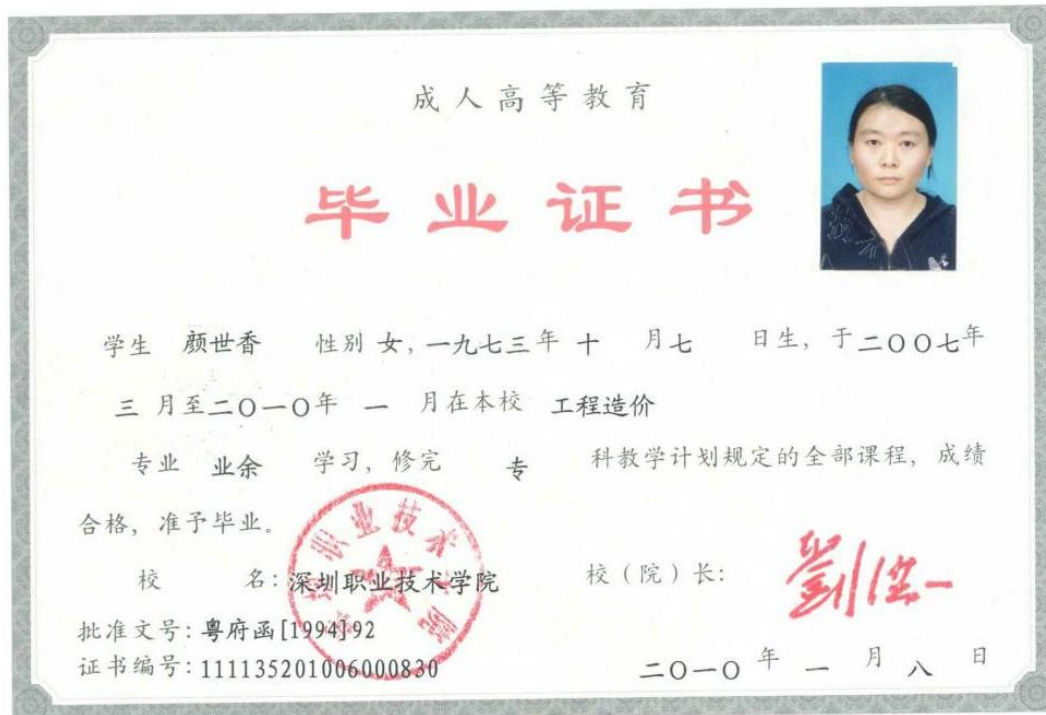 成人高等教育
毕业证书
学生 颜世香 性别 女，一九七三年 十 月七 日生，于二〇〇七年
三 月至二〇一〇年 一 月在本校 工程造价
专业 业余 学习，修完 专 科教学计划规定的全部课程，成绩
合格，准予毕业。
校 名：深圳职业技术学院
校（院）长：
批准文号：粤府函[1994]92
证书编号：111135201006000830
二〇一〇 年 一 月 八 日
深圳职业技术学院